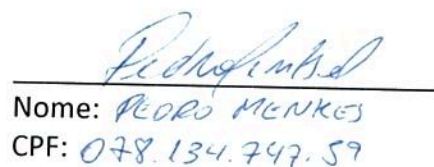 Nome: PEDRO MENKES
CPF: 078.134.747.59